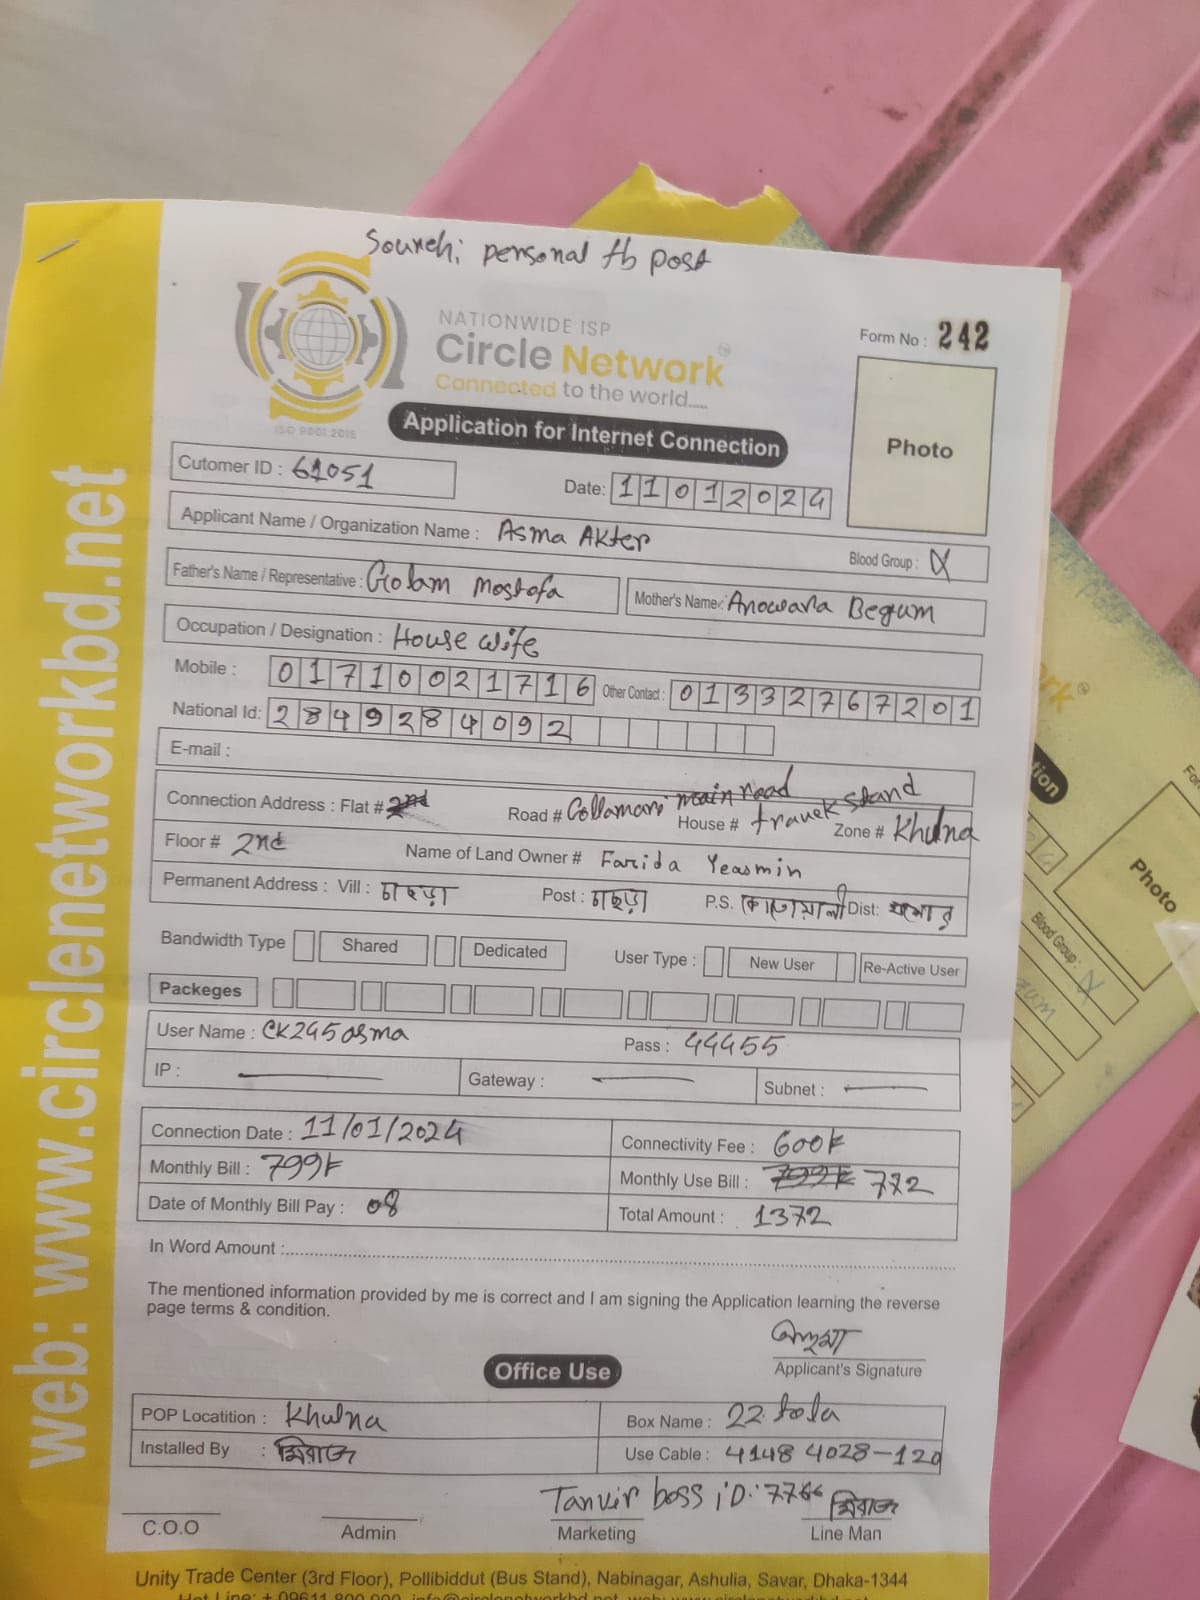 Sourch: personal fb post
NATIONWIDE ISP
Circle Network®
Connected to the world.....
ISO 9001:2015
Form No : 242
Photo
Application for Internet Connection
Cutomer ID : 61051
Date: 11012024
Applicant Name / Organization Name : Asma Akter
Blood Group :
Father's Name / Representative : Golam Mostofa
Mother's Name : Anowara Begum
Occupation / Designation : House wife
Mobile : 01710021716 Other Contact : 01332767201
National Id: 2849284092
E-mail :
Connection Address : Flat # 2nd Road # Gollamari main road House # trauck stand Zone # Khulna
Floor # 2nd Name of Land Owner # Farida Yeasmin
Permanent Address : Vill : চাছড়া Post : চাছড়া P.S. কোতোয়ালী Dist: যশোর
Bandwidth Type Shared Dedicated User Type : New User Re-Active User
Packeges
User Name : CK245asma Pass : 44455
IP : Gateway : Subnet :
Connection Date : 11/01/2024 Connectivity Fee : 600৳
Monthly Bill : 799৳ Monthly Use Bill : 799৳ 772
Date of Monthly Bill Pay : 08 Total Amount : 1372
In Word Amount :
The mentioned information provided by me is correct and I am signing the Application learning the reverse
page terms & condition.
আছমা
Applicant's Signature
Office Use
POP Locatition : Khulna Box Name : 22 tola
Installed By : মিরাজ Use Cable : 4148 4028-120
Tanvir boss iD: 7766 মিরাজ
C.O.O Admin Marketing Line Man
Unity Trade Center (3rd Floor), Pollibiddut (Bus Stand), Nabinagar, Ashulia, Savar, Dhaka-1344
web: www.circlenetworkbd.net
Photo
Blood Group :